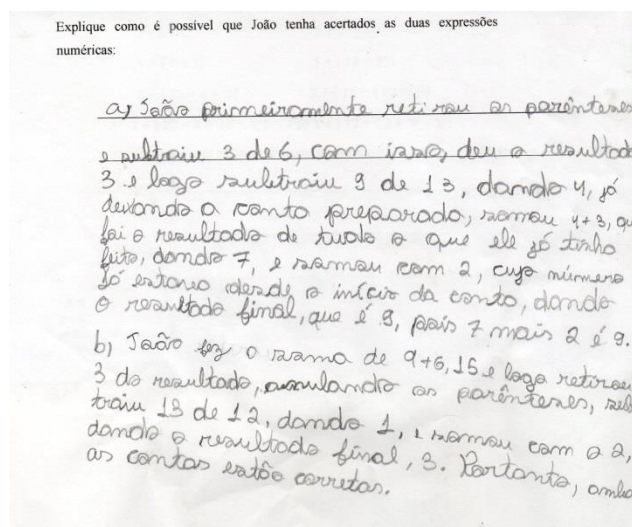 Explique como é possível que João tenha acertados as duas expressões
numéricas:
a) João primeiramente retirou os parênteses
e subtraiu 3 de 6, com isso, deu o resultad
3 e logo subtraiu 9 de 13, dando 4, já
deixando a conta preparada, somou 4+3, qu
foi o resultado de tudo o que ele já tinha
feito, dando 7, e somou com 2, cujo número
já estava desde o início da conta, dando
o resultado final, que é 9, pois 7 mais 2 é 9.
b) João fez a soma de 9+6, 15 e logo retirou
3 do resultado, anulando os parênteses, sub
traiu 13 de 12, dando 1, e somou com o 2,
dando o resultado final, 3. Portanto, amba
as contas estão corretas.